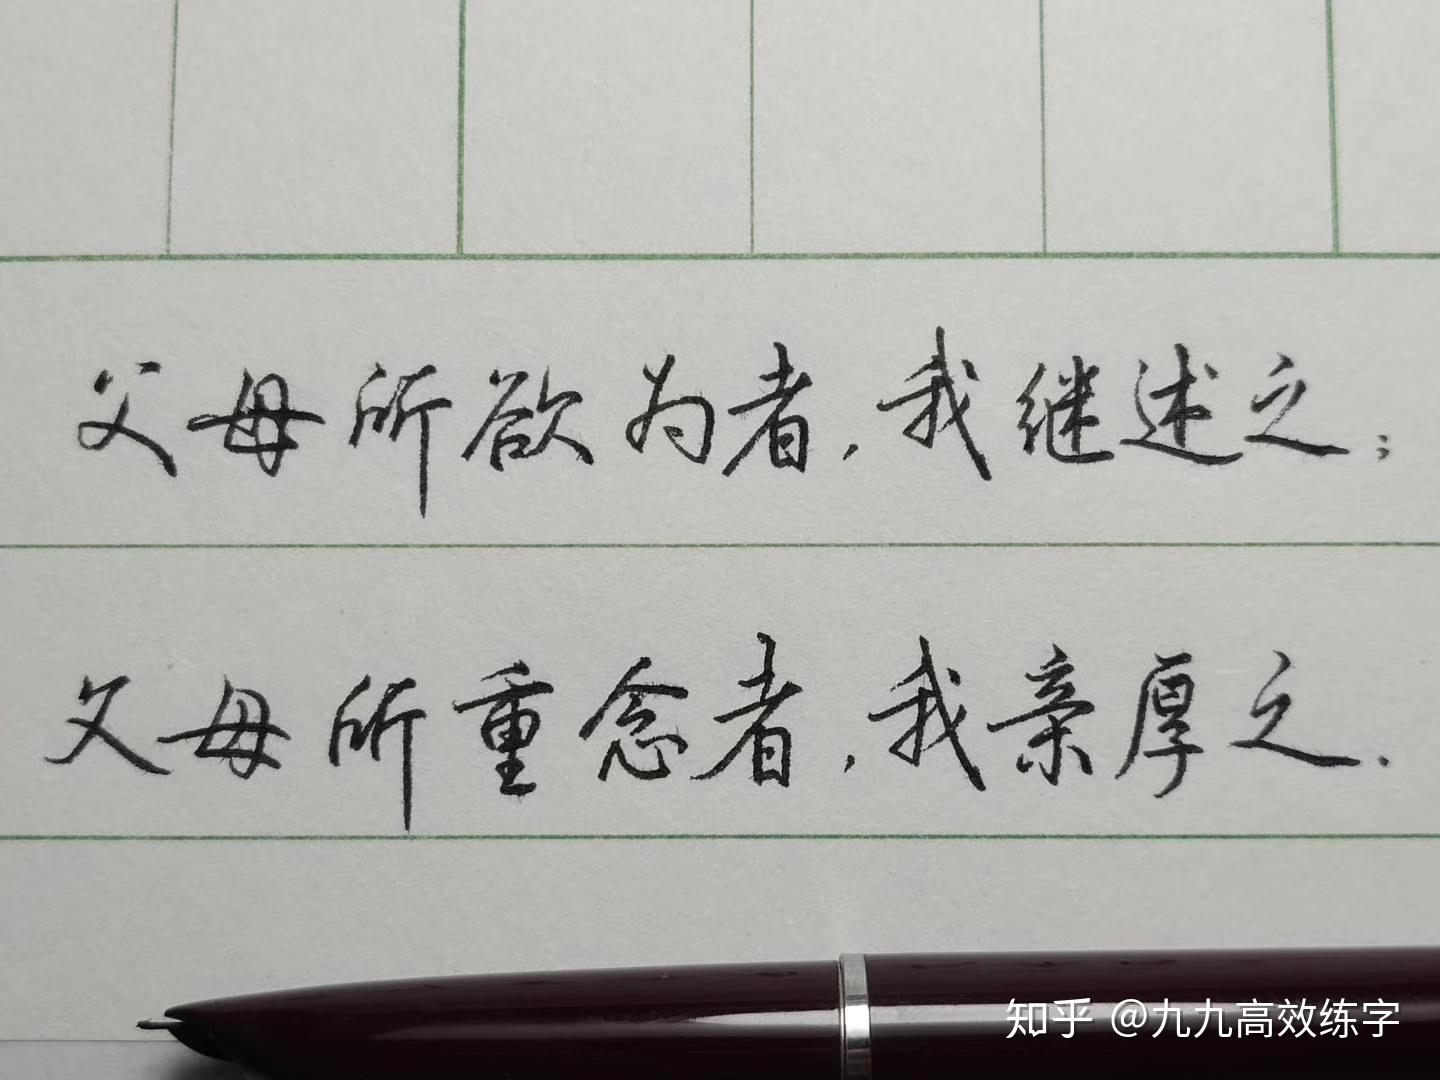 父母所欲为者，我继述之；
父母所重念者，我亲厚之.
知乎 @九九高效练字